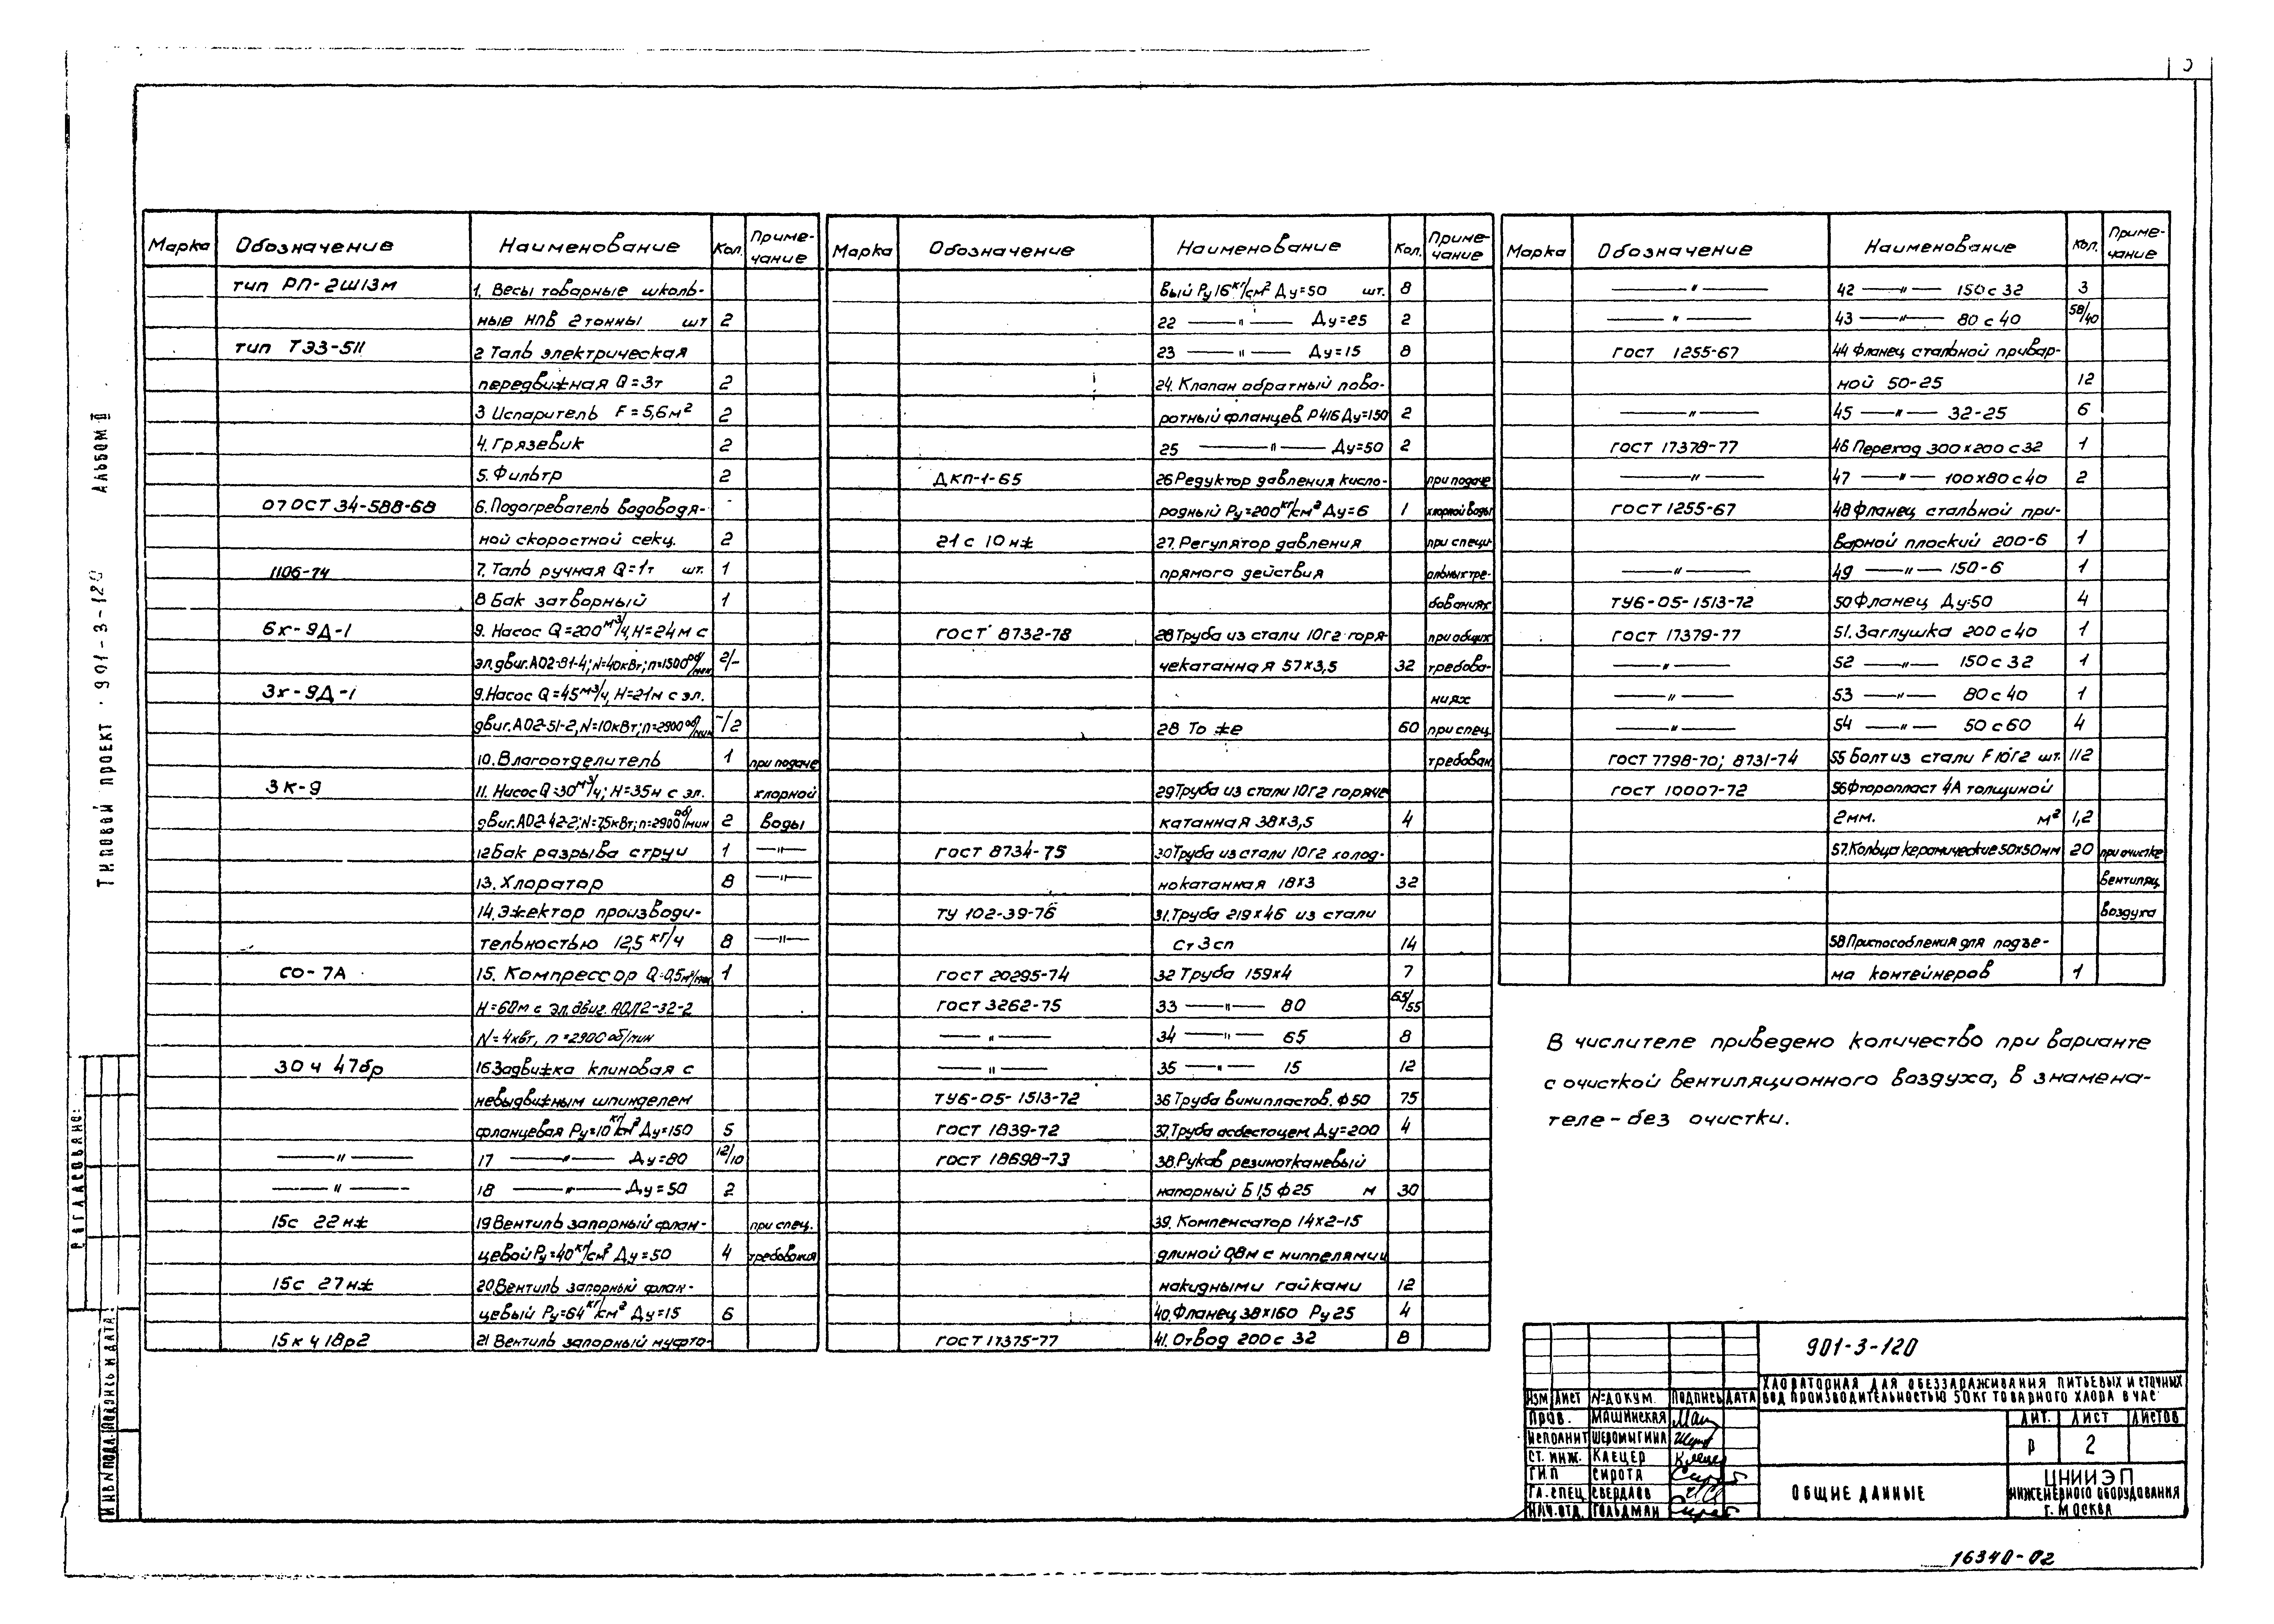 Марка Обозначение Наименование Кол. Приме-чание
тип РП-2Ш13м 1. Весы товарные школь-
ные НПВ 2 тонны шт 2
тип ТЭЗ-511 2 Таль электрическая
передвижная Q=3т 2
3 Испаритель F=5,6м² 2
4. Грязевик 2
5. Фильтр 2
07 ОСТ 34-588-68 6. Подогреватель водоводя-
ной скоростной секц. 2
1106-74 7. Таль ручная Q=1т шт. 1
8 Бак затворный 1
6х-9Д-1 9. Насос Q=200м³/ч, H=24м с
эл.двиг. АО2-81-4; N=40кВт; n=1500об/мин 2/-
3х-9Д-1 9. Насос Q=45м³/ч, H=21м с эл.
двиг. АО2-51-2, N=10кВт; n=2900об/мин -/2
10. Влагоотделитель 1 при подаче
3К-9 11. Насос Q=30м³/ч; H=35м с эл. хлорной
двиг. АО2-42-2; N=7,5кВт; n=2900об/мин 2 воды
12 Бак разрыва струи 1 —"—
13. Хлоратор 8 —"—
14. Эжектор производи-
тельностью 12,5 кг/ч 8 —"—
СО-7А 15. Компрессор Q=0,5м³/мин 1
H=60м с эл. двиг. АОЛ2-32-2
N=4квт, n=2900об/мин
30ч 47бр 16 Задвижка клиновая с
невыдвижным шпинделем
фланцевая Ру=10кг/см² Ду=150 5
—"— 17 —"— Ду=80 12/10
—"— 18 —"— Ду=50 2
15с 22нж 19 Вентиль запорный флан- при спец.
цевой Ру=40кг/см² Ду=50 4 требования
15с 27нж 20 Вентиль запорный флан-
цевый Ру=64кг/см² Ду=15 6
15к ч 18р2 21 Вентиль запорный муфто-
Марка Обозначение Наименование Кол. Приме-чание
вый Ру16кг/см² Ду=50 шт. 8
22 —"— Ду=25 2
23 —"— Ду=15 8
24. Клапан обратный пово-
ротный фланцев. Р416 Ду=150 2
25 —"— Ду=50 2
ДКП-1-65 26 Редуктор давления кисло- при подаче
родный Ру=200кг/см² Ду=6 1 хлорной воды
21с 10нж 27. Регулятор давления при специ
прямого действия альных тре-
бованиях
ГОСТ 8732-78 28 Труба из стали 10г2 горя- при общих
чекатанная 57х3,5 32 требова-
ниях
28 То же 60 при спец.
требован.
29 Труба из стали 10г2 горяче
катанная 38х3,5 4
ГОСТ 8734-75 30 Труба из стали 10г2 холод-
нокатанная 18х3 32
ТУ 102-39-76 31. Труба 219х46 из стали
Ст 3сп 14
ГОСТ 20295-74 32 Труба 159х4 7
ГОСТ 3262-75 33 —"— 80 65/55
—"— 34 —"— 65 8
—"— 35 —"— 15 12
ТУ6-05-1513-72 36 Труба винипластов. Ф50 75
ГОСТ 1839-72 37. Труба асбестоцем Ду=200 4
ГОСТ 18698-73 38. Рукав резинотканевый
напорный Б 1,5 ф25 м 30
39. Компенсатор 14х2-15
длиной 0,8м с ниппелями и
накидными гайками 12
40. Фланец 38х160 Ру25 4
ГОСТ 17375-77 41. Отвод 200с 32 8
Марка Обозначение Наименование Кол. Приме-чание
—"— 42 —"— 150с 32 3
—"— 43 —"— 80с 40 58/40
ГОСТ 1255-67 44 Фланец стальной привар-
ной 50-25 12
—"— 45 —"— 32-25 6
ГОСТ 17378-77 46 Переход 300х200 с32 1
—"— 47 —"— 100х80 с40 2
ГОСТ 1255-67 48 Фланец стальной при-
варной плоский 200-6 1
—"— 49 —"— 150-6 1
ТУ6-05-1513-72 50 Фланец Ду=50 4
ГОСТ 17379-77 51. Заглушка 200с40 1
—"— 52 —"— 150с32 1
—"— 53 —"— 80с40 1
—"— 54 —"— 50с60 4
ГОСТ 7798-70; 8731-74 55 Болт из стали F10Г2 шт. 112
ГОСТ 10007-72 56 Фторопласт 4А толщиной
2мм. м² 1,2
57. Кольца керамические 50х50мм 20 при очистке
вентиляц.
воздуха
58 Приспособления для подъе-
ма контейнеров 1
В числителе приведено количество при варианте
с очисткой вентиляционного воздуха, в знамена-
теле - без очистки.
ТИПОВОЙ ПРОЕКТ 901-3-120 АЛЬБОМ II
СОГЛАСОВАНО:
ИНВ№ПОДЛ. ПОДПИСЬ И ДАТА
901-3-120
ХЛОРАТОРНАЯ ДЛЯ ОБЕЗЗАРАЖИВАНИЯ ПИТЬЕВЫХ И СТОЧНЫХ
ВОД ПРОИЗВОДИТЕЛЬНОСТЬЮ 50КГ ТОВАРНОГО ХЛОРА В ЧАС
ИЗМ ЛИСТ №ДОКУМ. ПОДПИСЬ ДАТА
ПРОВ. МАШИНСКАЯ
ИСПОЛНИТ ШЕРОМЫГИНА
СТ. ИНЖ. КЛЕЦЕР
ГИП СИРОТА
ГЛ. СПЕЦ СВЕРДЛОВ
НАЧ.ОТД. ГОЛЬДМАН
ЛИТ. ЛИСТ ЛИСТОВ
Р 2
ОБЩИЕ ДАННЫЕ
ЦНИИЭП
ИНЖЕНЕРНОГО ОБОРУДОВАНИЯ
Г. МОСКВА
16340-02